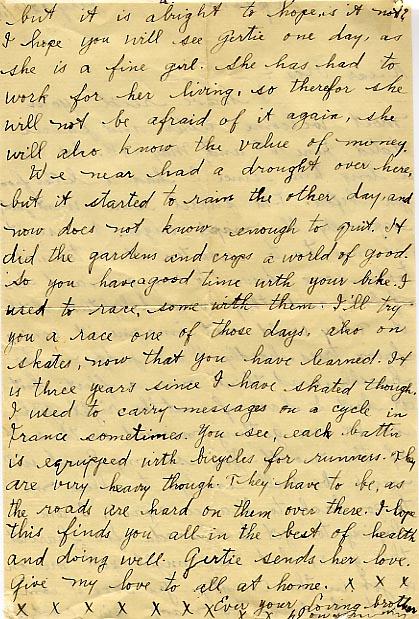 but it is alright to hope, is it not?
I hope you will see Gertie one day, as
she is a fine girl. She has had to
work for her living, so therefor she
will not be afraid of it again, she
will also know the value of money.
We near had a drought over here,
but it started to rain the other day, and
now does not know enough to quit. It
did the gardens and crops a world of good.
So you have a good time with your bike. I
used to race, some with them. I'll try
you a race one of those days. also on
skates, now that you have learned. It
is three years since I have skated though.
I used to carry messages on a cycle in
France sometimes. You see, each battn
is equipped with bicycles for runners. They
are very heavy though. They have to be, as
the roads are hard on them over there. I hope
this finds you all in the best of health
and doing well. Gertie sends her love.
Give my love to all at home. x x x
x x x x x x x x x Ever your loving brother